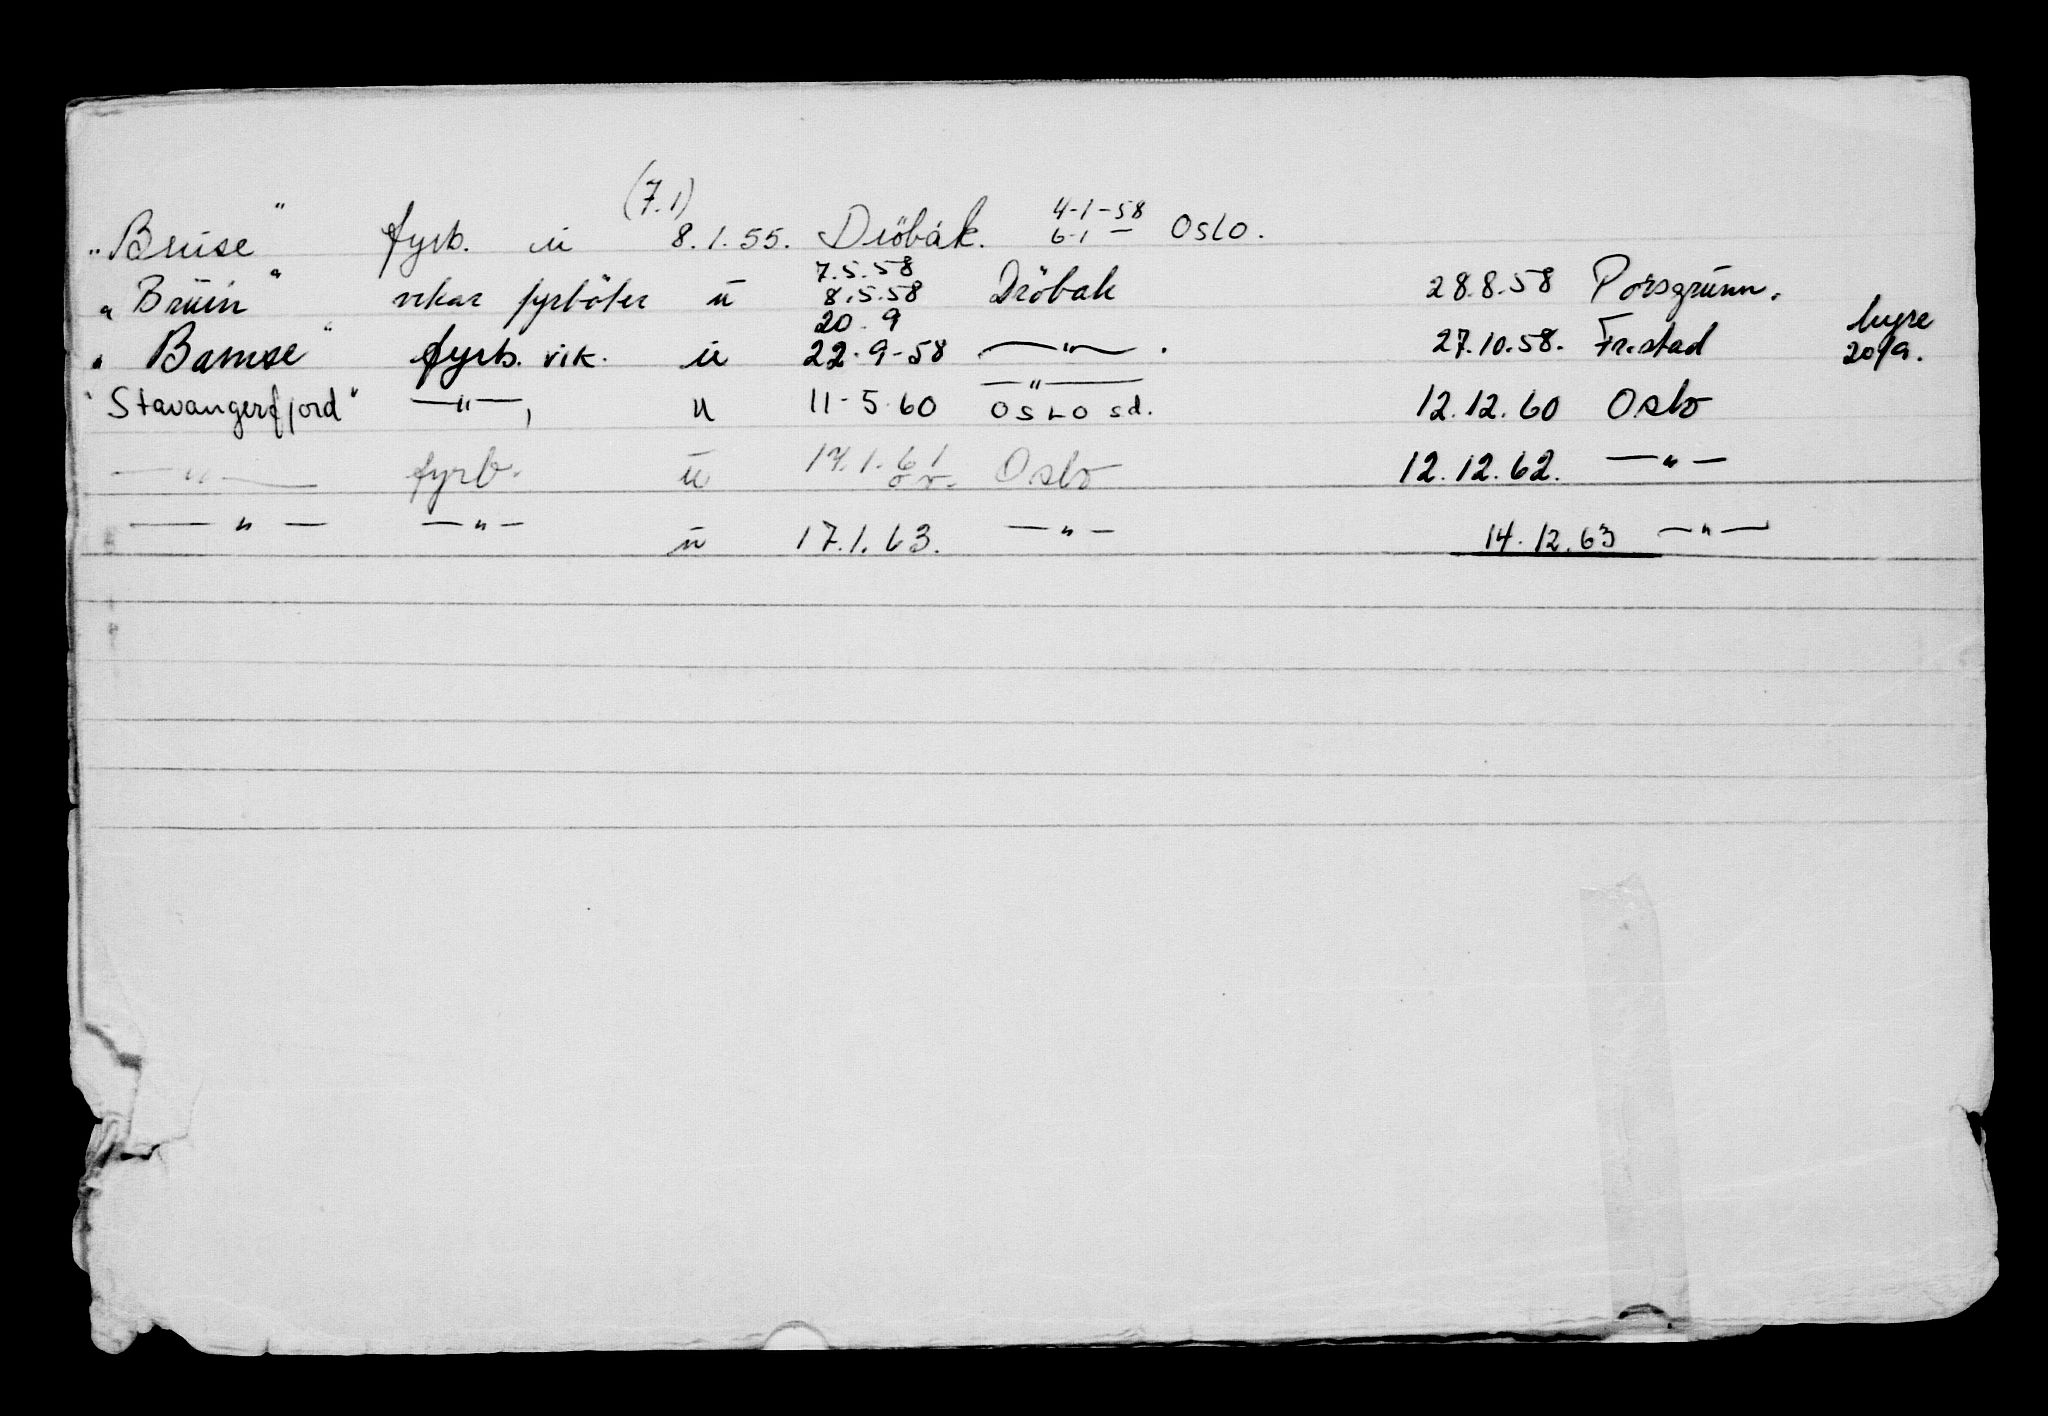 (7.1)
"Bruse" fyrb. u 8.1.55. Dröbak. 4-1-58 6-1 — Oslo.
"Bruin" vikar fyrböter u 7.5.58 8.5.58 Dröbak 28.8.58 Porsgrunn.
"Bamse" fyrb. vik. u 20.9 22.9-58 —"— . 27.10.58. Fr.stad hyre 20/9.
"Stavangerfjord" —"—, u 11-5.60 —"— OSLO sd. 12.12.60 Oslo
—"— fyrb. u 17.1.61 ov. Oslo 12.12.62. —"—
—"— —"— u 17.1.63. —"— 14.12.63 —"—